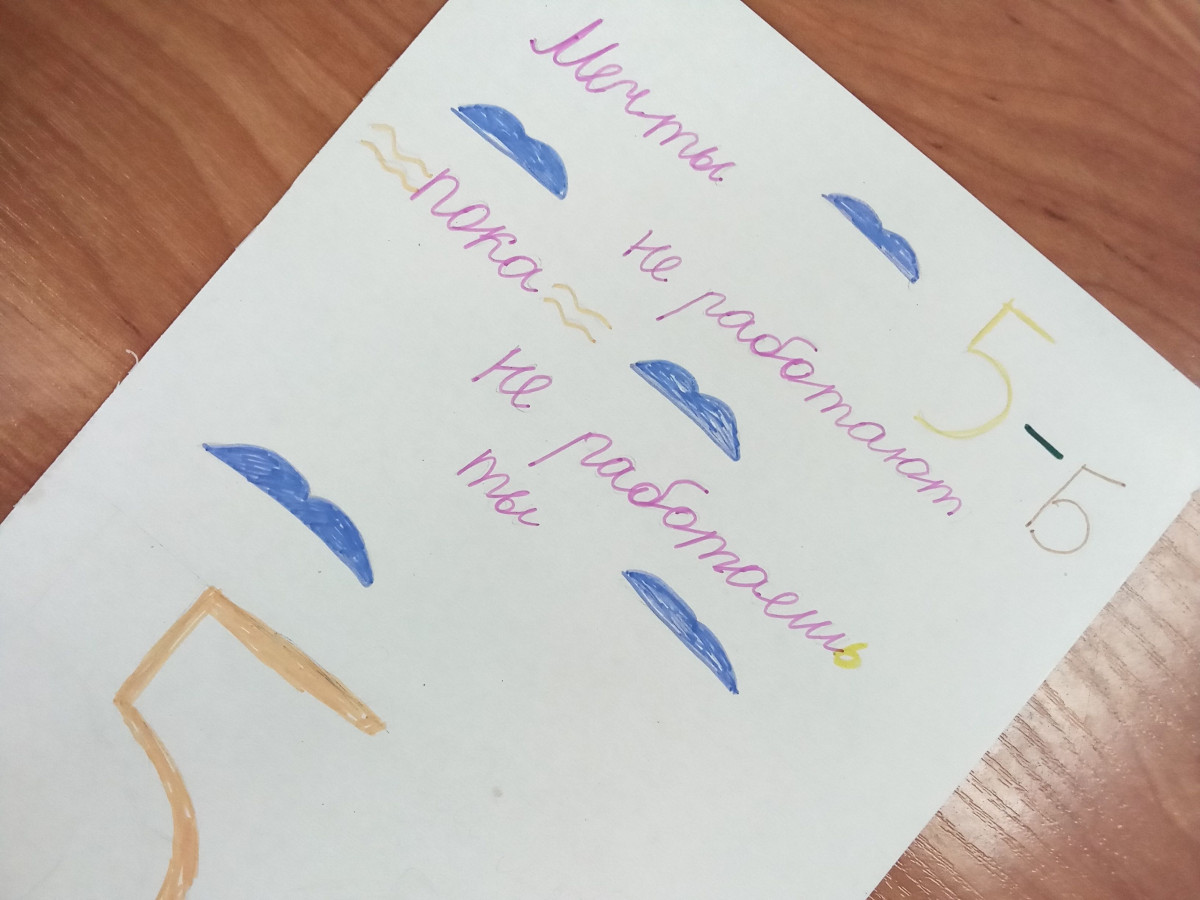 Мечты
не работают
пока
не работаешь
ты
5-Б
5